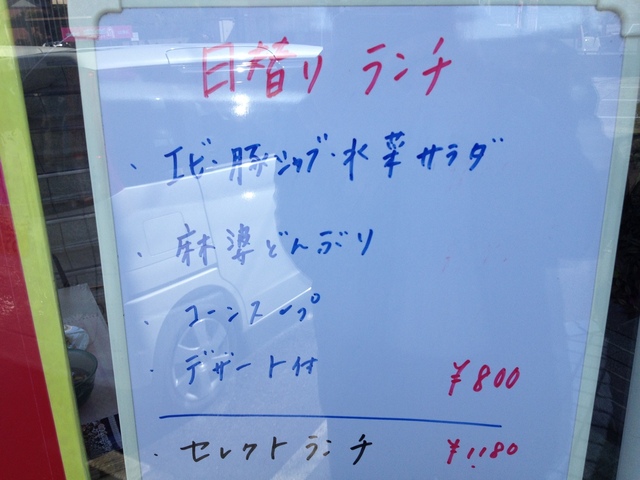 日替り ランチ
・エビ・豚シャブ・水菜サラダ
・麻婆どんぶり
・コーンスープ
・デザート付 ¥800
・セレクトランチ ¥1180